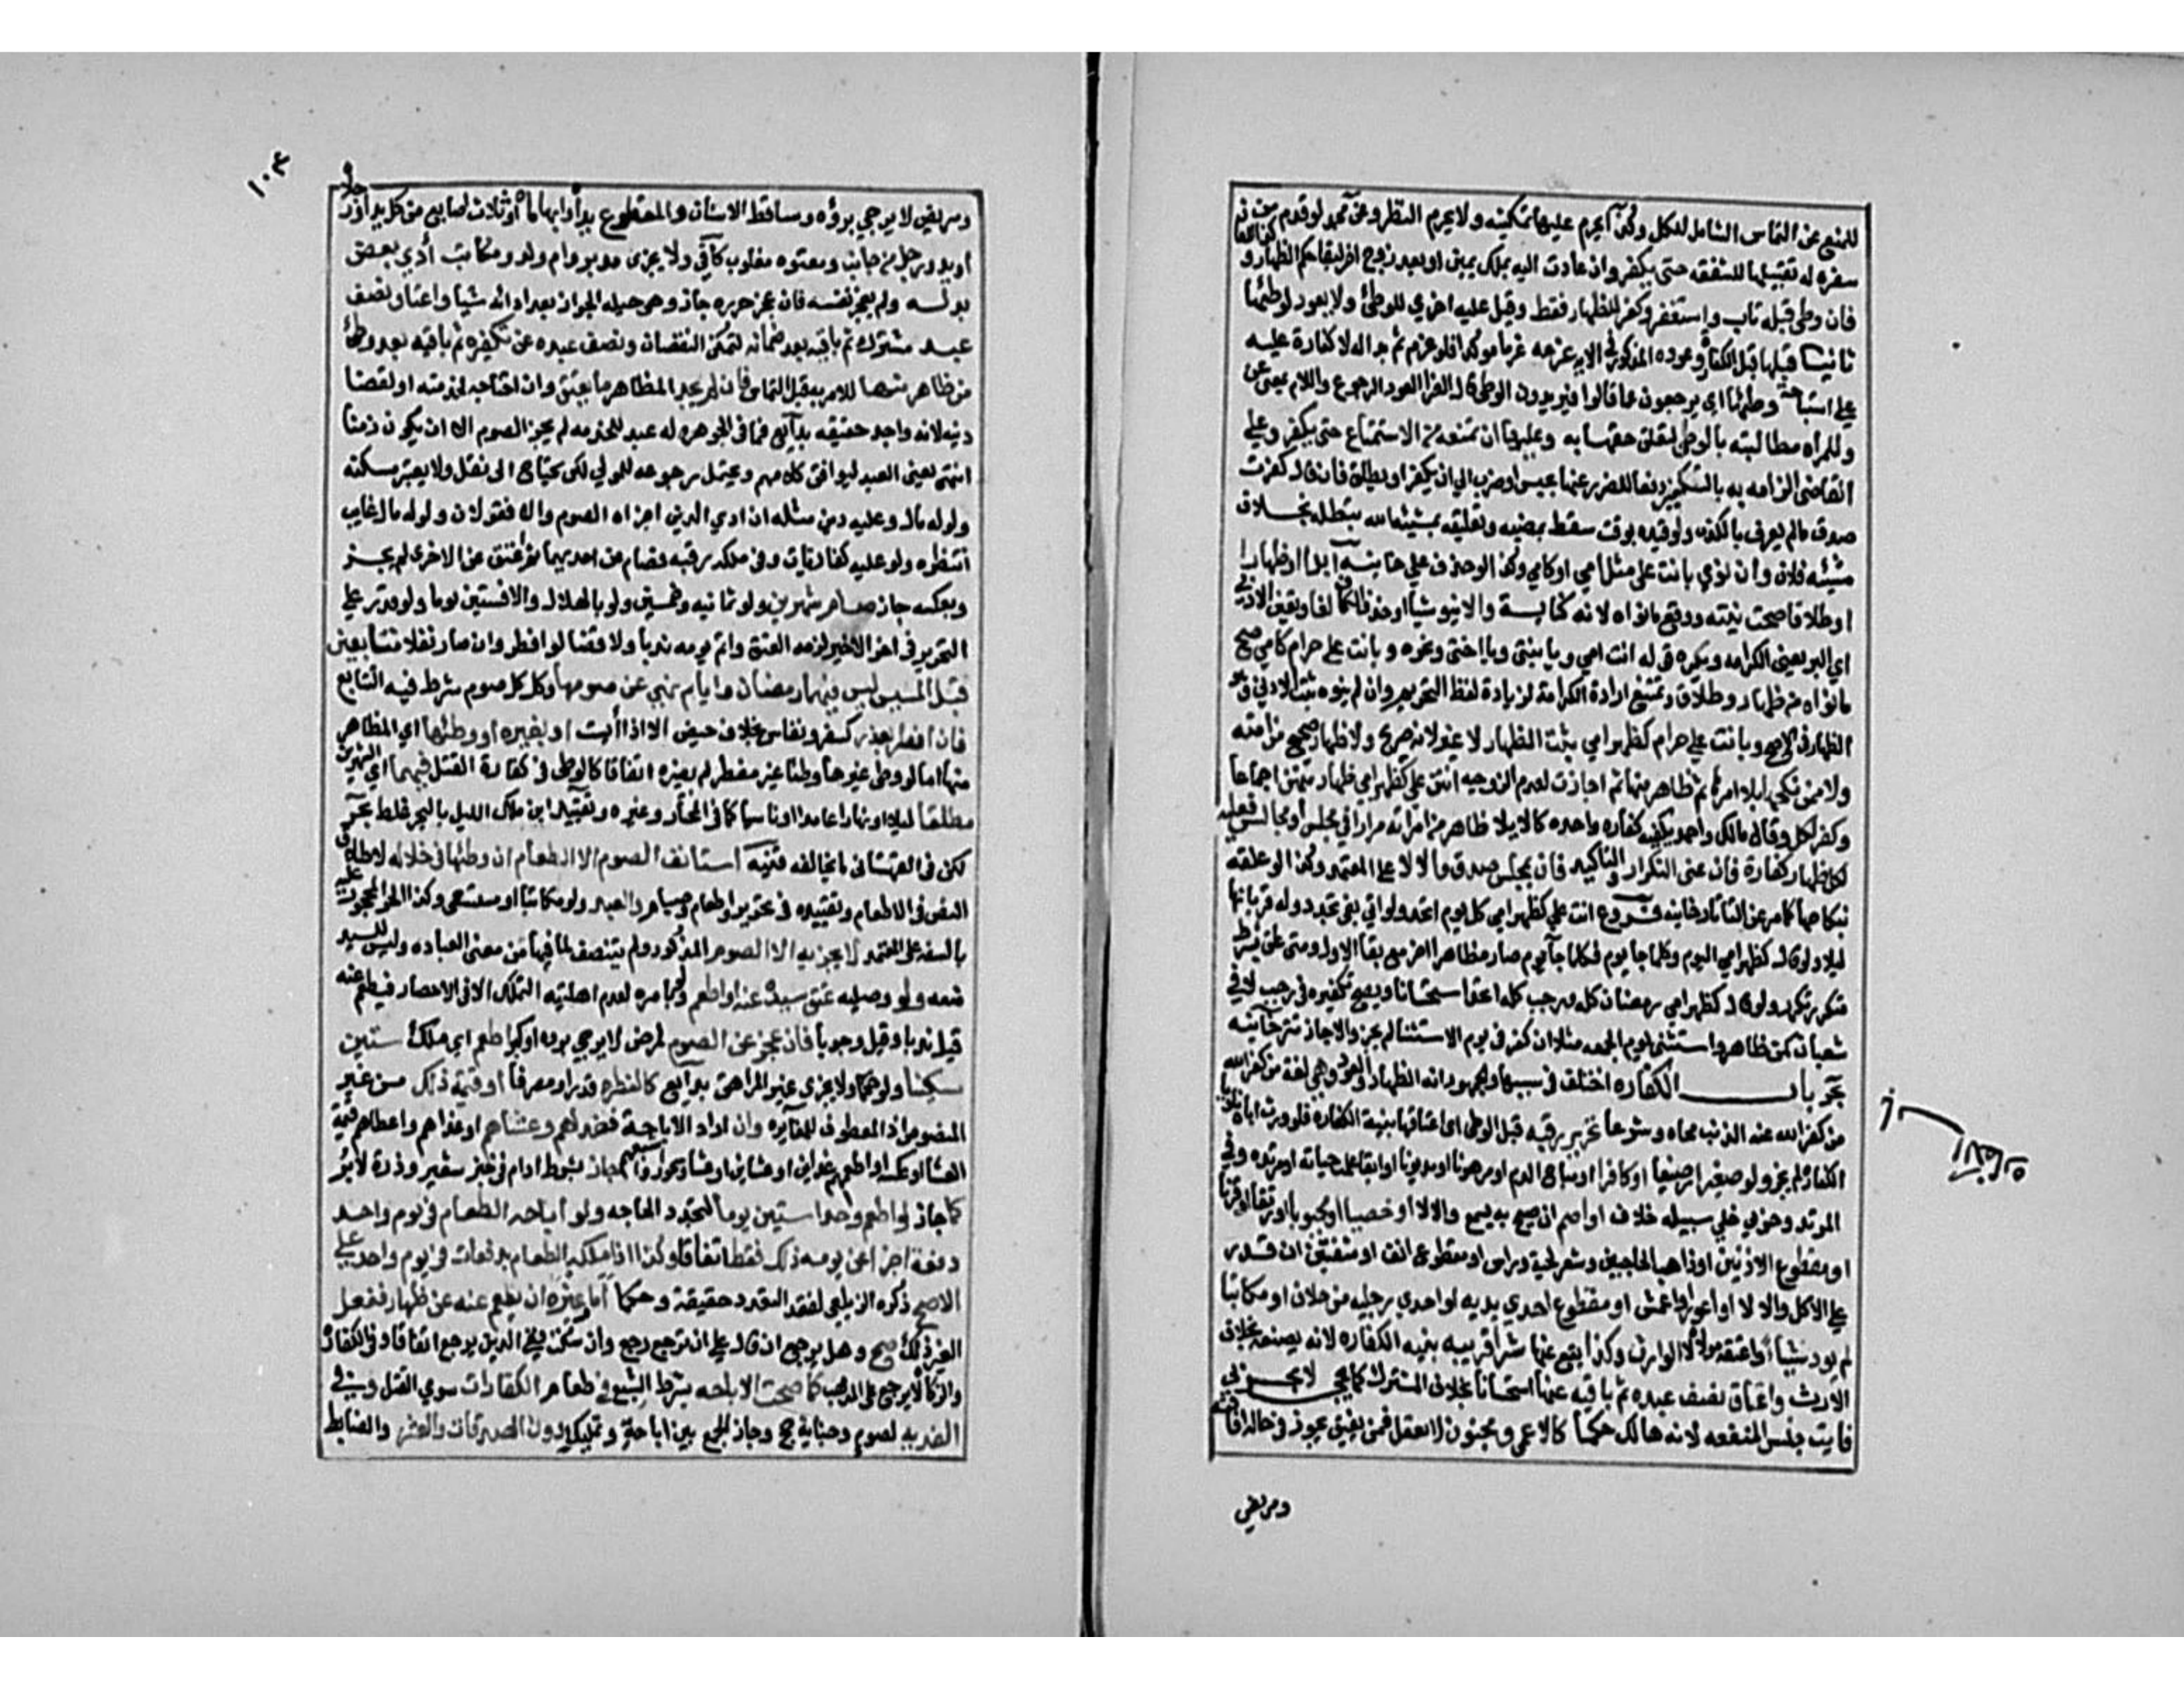 للمنع عن التماس الشامل للكل وكذا يحرم عليها تمكينه ولا يحرم النظر وعن محمد لو قدم من
سفره له تقبيلها للشفقه حتى يكفر وان عادت اليه بملك يمين او بعد زوج اخر لبقا حكم الظهار و
فان وطى قبله تاب واستغفر وكفر للظهار فقط وقيل عليه اخري للوطئ ولا يعود لوطئها
ثانيا قبلها قبل الكفارة وعوده المذكور في الايه عزمه عزما موكدا فلو عزم ثم بدا له لا كفارة عليه
على استباحة وطئها اي يرجعون عما قالوا فيريدون الوطى قال الفرا العود الرجوع واللام بمعنى عن
وللمراه مطالبته بالوطى لتعلق حقها به وعليها ان تمنعه من الاستمتاع حتى يكفر وعلى
القاضى الزامه به بالتكفير دفعا للضرر عنها بحبس او ضرب الي ان يكفر او يطلق فان قال كفرت
صدق مالم يعرف بالكذب ولو قيده بوقت سقط بمضيه وتعليقه بمشيئة الله يبطله بخلاف
مشيئه فلان وان نوي بانت على مثل امي او كامي وكذا لو حذف على خانيه برا او ظهارا
او طلاقا صحت نيته ووقع مانواه لانه كناية والا ينو شيا او حذف الكاف لغا وتعين الادنى
اي البر يعنى الكرامه ويكره قوله انت امي ويا بنتي ويا اختي ونحوه وبانت على حرام كامي صح
مانواه من ظهار وطلاق وتمتنع ارادة الكرامة لزيادة لفظ التحريم وان لم ينوه ثبت الادنى وهو
الظهار في الاصح وبانت على حرام كظهر امي يثبت الظهار لا غير لانه صريح ولا ظهار صحيح من امته
ولا ممن نكحها بلا امرها ثم ظاهر منها ثم اجازت لعدم الزوجيه انتن على كظهر امي ظهار منهن اجماعا
وكفر لكل وقال مالك واحمد يكفيه كفاره واحده كالايلا ظاهر من امراته مرارا في مجلس او مجالس فعليه
لكل ظهار كفارة فان عنى التكرار والتاكيد فان بمجلس صدق والا لا على المعتمد وكذا لو علقه
بنكاحها كما مر عن التاتارخانيه فروع انت على كظهر امي كل يوم اتحد ولو اتى بفي تجدد وله قربانها
ليلا ولو قال كظهر امي اليوم وكلما جا يوم فكلما جا يوم صار مظاهرا اخر مع بقا الاول ومتى علق بشرط
متكرر تكرر ولو قال كظهر امي رمضان كله ورجب كله اتحد استحسانا ويصح تكفيره في رجب لا في
شعبان كمن ظاهر واستثنى يوم الجمعه مثلا ان كفر في يوم الاستثنا لم يجز والا جاز تتر خانيه
بحر باب الكفاره اختلف في سببها والجمهور انه الظهار والعود وهي لغة من كفر الله
من كفر الله عنه الذنب محاه وشرعا تحرير رقبه قبل الوطى اى اعتاقها بنية الكفاره فلو ورث اباه ناويا
الكفارة لم يجز ولو صغيرا رضيعا او كافرا او مباح الدم او مرهونا او مديونا او ابقا علمت حياته او مرتده وفي
المرتد وحربي خلي سبيله خلاف او اصم ان صيح به يسمع والا لا او خصيا او مجبوبا او رتقا او قرنا
او مقطوع الاذنين او ذاهب الحاجبين وشعر لحية وراس او مقطوع انف او شفتين ان قدر
على الاكل والا لا او اعور او اعمش او مقطوع احدي يديه او احدي رجليه من خلاف او مكاتبا
لم يود شيئا واعتقه مولاه لا الوارث وكذا يقع عنها شرا قريبه بنيه الكفاره لانه بصنعه بخلاف
الارث واعتاق نصف عبده ثم باقيه عنها استحسانا بخلاف المشترك كما يجى لا يجزي
فايت جنس المنفعه لانه هالك حكما كالاعمى ومجنون لا يعقل فمن يفيق يجوز في حال افاقته
ومريض
١٠٣
ومريض لا يرجي برؤه وساقط الاسنان والمقطوع يداه او ابهاماه او ثلاث اصابع من كل يد او رجلاه
او يد ورجل من جانب ومعتوه مغلوب كافي ولا يجزى مدبر وام ولد ومكاتب أدي بعض
بدله ولم يعجز نفسه فان عجز حرره جاز وهي حيله الجواز بعد ادائه شيا واعتاق نصف
عبد مشترك ثم باقيه بعد ضمانه لتمكن النقصان ونصف عبده عن تكفيره ثم باقيه بعد وطئ
من ظاهر منها للامر به قبل التماس فان لم يجد المظاهر ما يعتق وان احتاجه لخدمته او لقضا
دينه لانه واجد حقيقه بدايع فما في الجوهره له عبد للخدمه لم يجز الصوم الا ان يكون زمنا
انتهى يعنى العبد ليوافق كلامهم ويحتمل رجوعه للمولي لكن يحتاج الى نقل ولا يعتبر مسكنه
ولو له مال وعليه دين مثله ان ادي الدين اجزاه الصوم والا فقولان ولو له مال غايب
انتظره ولو عليه كفارتان وفي ملكه رقبه فصام عن احديهما ثم اعتق عن الاخرى لم يجز
وبعكسه جاز صام شهرين ولو ثمانيه وخمسين ولو بالهلال والا فستين يوما ولو قدر على
التحرير في اخر الاخير لزمه العتق واتم يومه ندبا ولا قضا لو افطر وان صار نفلا متتابعين
قبل المسيس ليس فيهما رمضان وايام نهي عن صومها وكذا كل صوم شرط فيه التتابع
فان افطر بعذر كسفر ونفاس بخلاف حيض الا اذا أيست او بغيره او وطئها اي المظاهر
منها اما لو وطى غيرها وطئا غير مفطر لم يضره اتفاقا كالوطى في كفارة القتل فيهما اي الشهرين
مطلقا ليلا او نهارا عامدا او ناسيا كما في المختار وغيره وتقييد ابن ملك الليل بالعمد غلط بحر
لكن في القهستانى ما يخالفه فتنبه استانف الصوم لا الاطعام ان وطئها في خلاله لاطلاق
النص في الاطعام وتقييده في تحرير واطعام وصيام والعبد ولو مكاتبا او مستسعى وكذا الحر المحجور عليه
بالسفه على المعتمد لا يجزيه الا الصوم المذكور ولم يتنصف لما فيها من معنى العباده وليس للسيد
منعه ولو وصليه عتق سيده عنه او اطعم ولو بامره لعدم اهليته التملك الا في الاحصار فيطعم عنه
قيل ندبا وقيل وجوبا فان عجز عن الصوم لمرض لا يرجي برؤه او كبر اطعم اي ملك ستين
مسكينا ولو حكما ولا يجزي غير المراهق بدايع كالفطره قدرا ومصرفا او قيمة ذلك من غير
المنصوص اذ العطف للمغايره وان اراد الاباحة فغداهم وعشاهم او غداهم واعطاهم قيمة
العشا او عكسه او اطعمهم غداين او عشاين او عشا وسحورا واشبعهم جاز بشرط ادام في خبز شعير وذرة لا بر
كما جاز لو اطعم واحدا ستين يوما لتجدد الحاجه ولو اباحه الطعام في يوم واحد
دفعة اجزا عن يومه ذلك فقط اتفاقا وكذا اذا ملكه الطعام بدفعات في يوم واحد على
الاصح ذكره الزيلعي لفقد التعدد حقيقة وحكما أمر غيره ان يطعم عنه عن ظهاره ففعل
الغير ذلك صح وهل يرجع ان قال على ان ترجع رجع وان سكت ففي الدين يرجع اتفاقا وفي الكفارة
والزكاة لا يرجع على المذهب كما صحت الاباحه بشرط الشبع في طعام الكفارات سوي القتل وصح في
الفديه لصوم وجناية حج وجاز الجمع بين اباحة وتمليك دون الصدقات والعشر والضابط